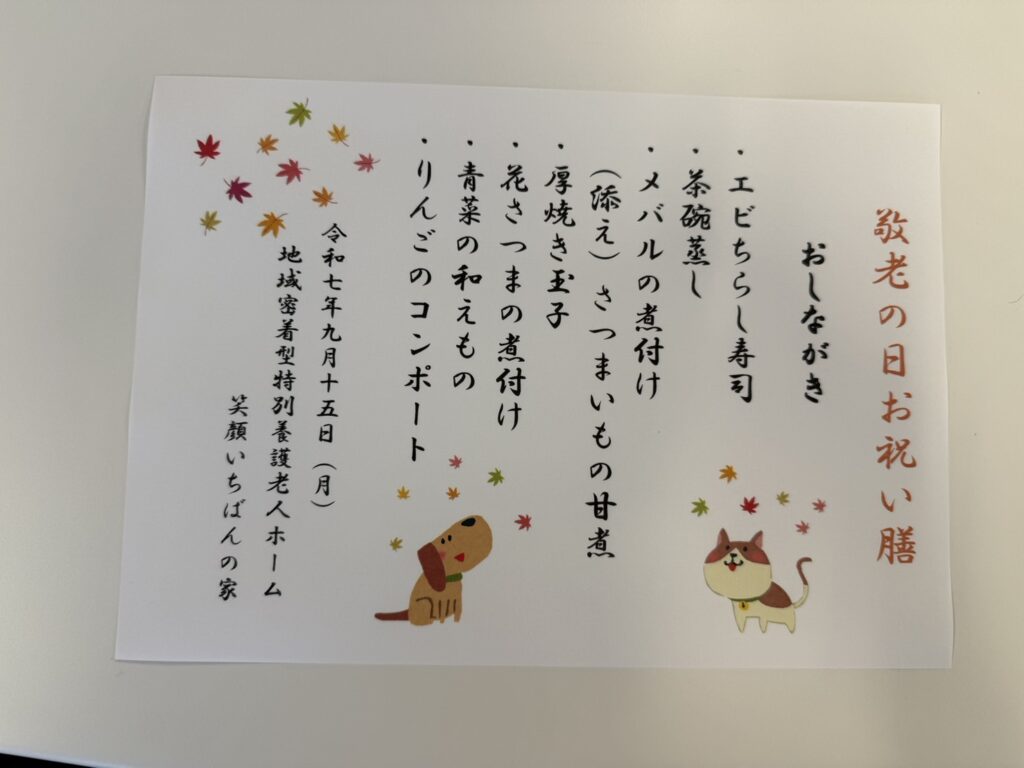 敬老の日お祝い膳
おしながき
・エビちらし寿司
・茶碗蒸し
・メバルの煮付け
（添え）さつまいもの甘煮
・厚焼き玉子
・花さつまの煮付け
・青菜の和えもの
・りんごのコンポート
令和七年九月十五日（月）
地域密着型特別養護老人ホーム
笑顔いちばんの家